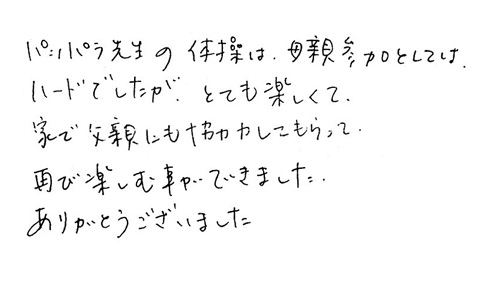 パパパラ先生の体操は、母親参加としては、
ハードでしたが、とても楽しくて、
家で父親にも協力してもらって、
再び楽しむ事ができました。
ありがとうございました